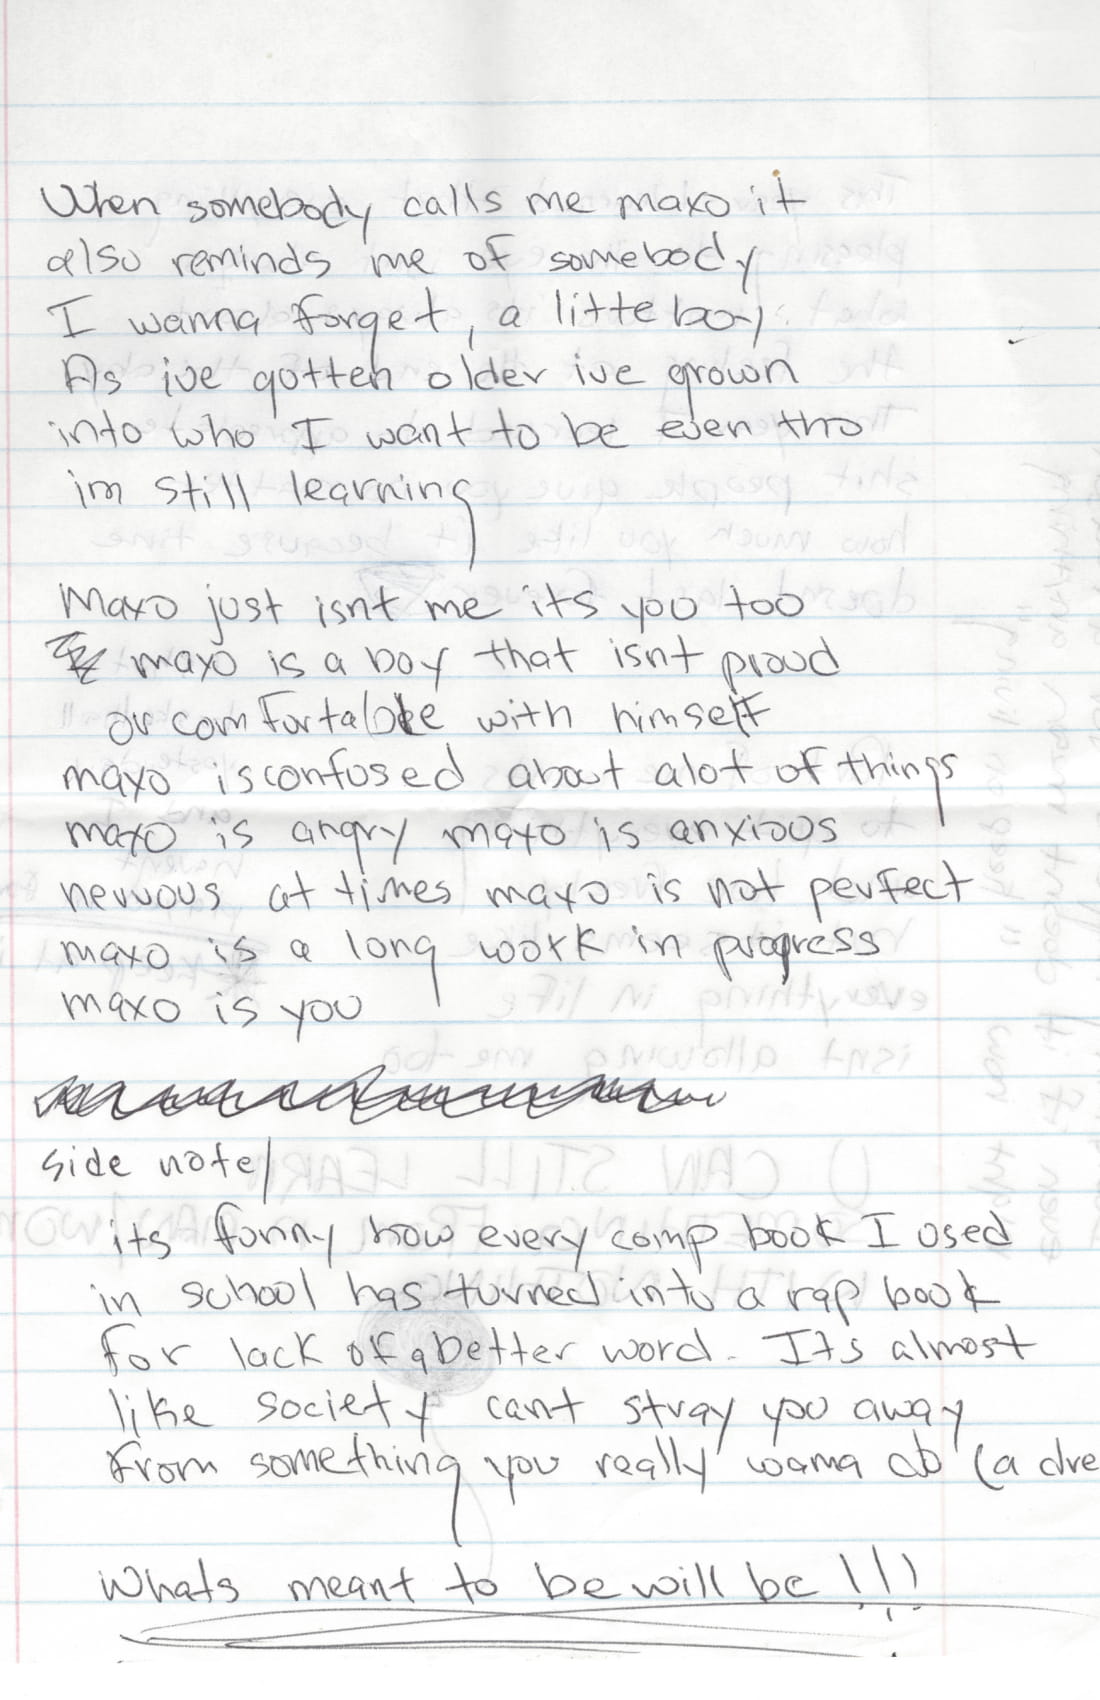 When somebody calls me maxo it
also reminds me of somebody
I wanna forget, a litte boy.
As ive gotten older ive grown
into who I want to be even tho
im still learning
Maxo just isnt me its you too
maxo is a boy that isnt proud
or comfortable with himself
maxo is confused about alot of things
maxo is angry maxo is anxious
nervous at times maxo is not perfect
maxo is a long work in progress
maxo is you
side note/
its funny how every comp book I used
in school has turned into a rap book
for lack of a better word. Its almost
like society cant stray you away
from something you really wanna do (a dre
Whats meant to be will be !!!